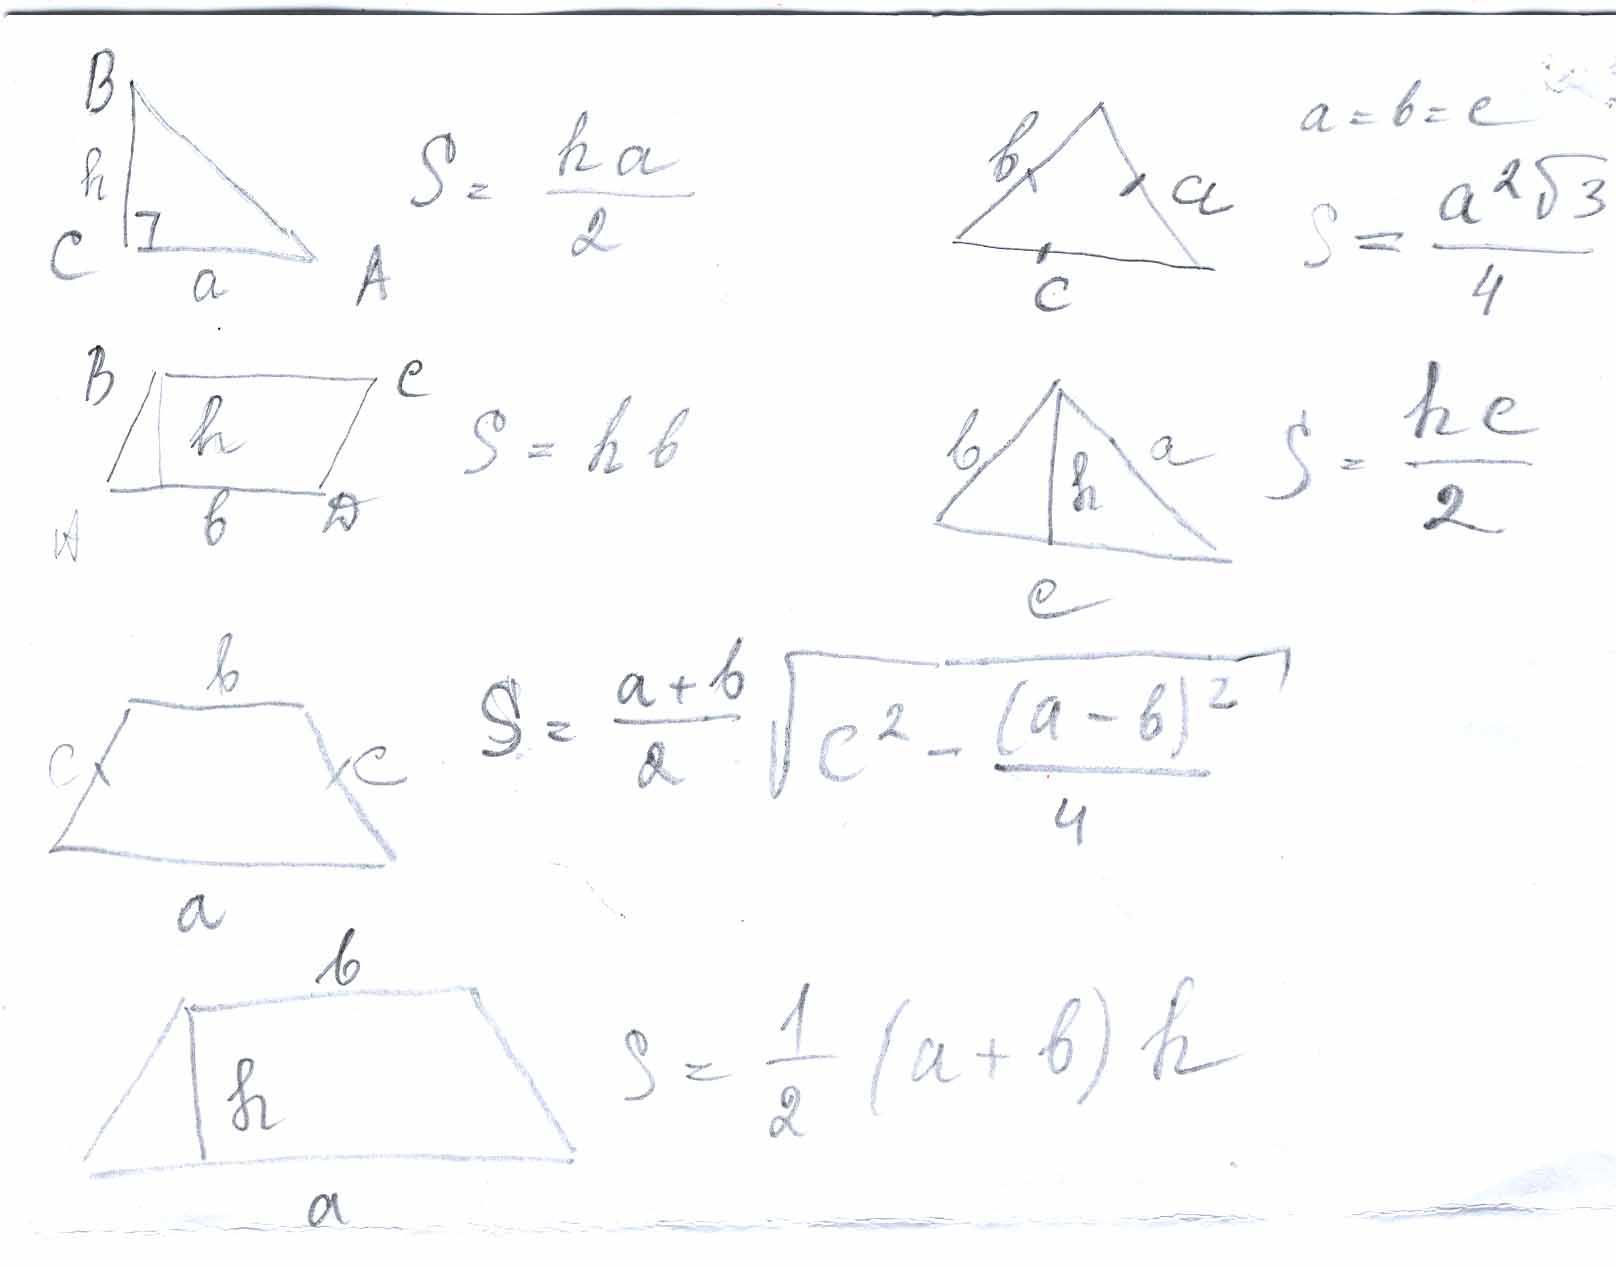 B
h
C
a
A
S = ha/2
b
a
c
a = b = c
S = a²√3/4
B
C
h
A
b
D
S = hb
b
a
h
c
S = hc/2
b
c
c
a
S = a+b/2 √(c² - (a-b)²/4)
b
h
a
S = 1/2 (a+b) h